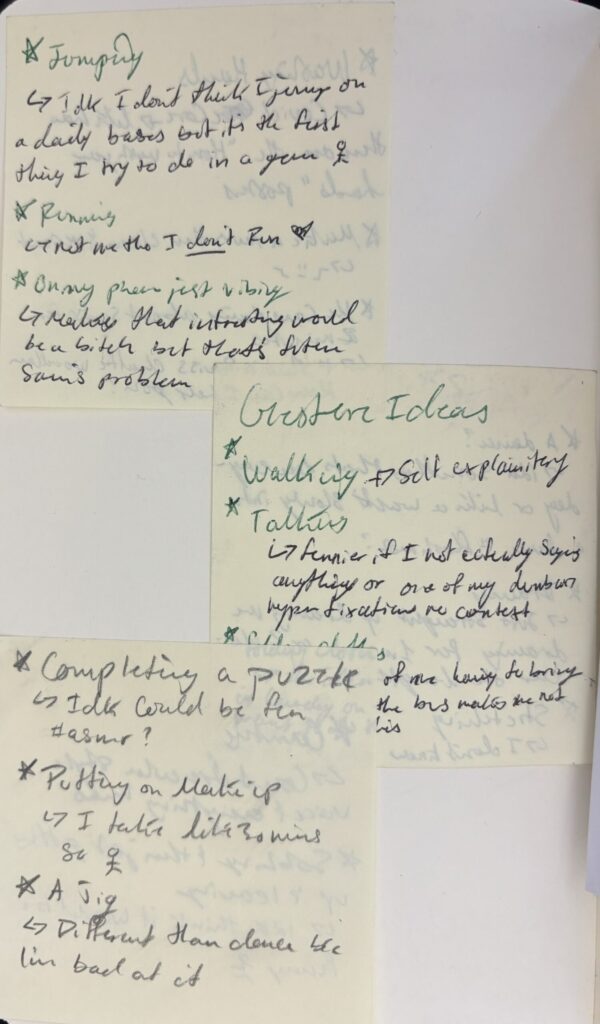 * Jumping
↳ Idk I don't think I jump on
a daily bases but it's the first
thing I try to do in a game
* Running
↳ not me tho I don't Run
* On my phone just vibing
↳ Making that intresting would
be a bitch but that's future
Sam's problem
Gesture Ideas
* Walking → Self explainitory
* Talking
↳ funnier if I not actually saying
anything or one of my dumbass
hyper fixations no context
of me having to bring
the bus makes me not
* Completing a puzzle
↳ Idk could be fun
#asmr?
* Putting on Makeup
↳ I take like 30 mins
so
* A Jig
↳ Different than dance bc
I'm bad at it